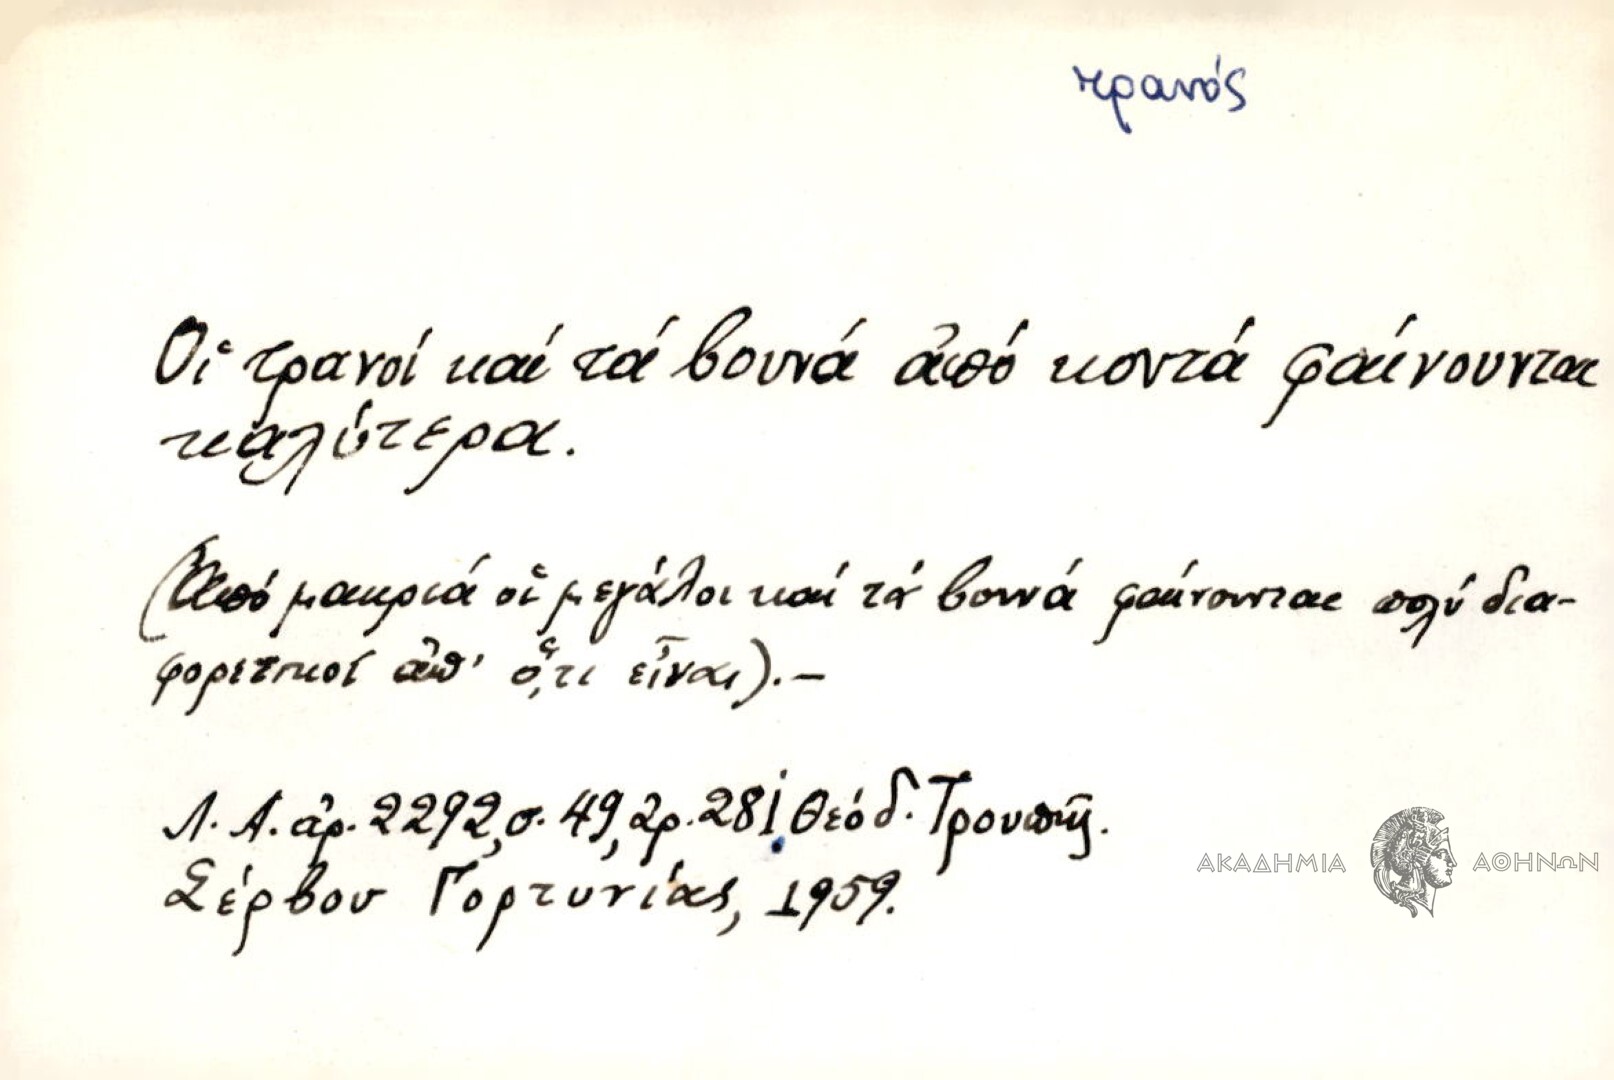 τρανός
Οἱ τρανοί καί τά βουνά ἀπό κοντά φαίνουνται
καλύτερα.
(Ἀπό μακριά οἱ μεγάλοι καί τά βουνά φαίνουνται πολύ δια-
φορετικοί ἀπ' ὅ,τι εἶναι).-
Λ. Α. ἀρ. 2292, σ. 49, ἀρ. 281, Θεόδ. Τρουπῆς.
Σέρβου Γορτυνίας, 1959.
ΑΚΑΔΗΜΙΑ ΑΘΗΝΩΝ